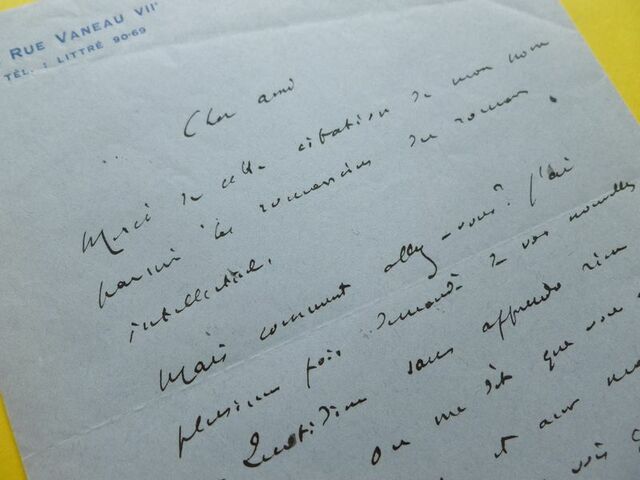 RUE VANEAU VIIᵉ
TÉL. : LITTRÉ 90-69
Cher ami
Merci de cette citation de mon nom
parmi les romanciers du roman
intellectuel.
Mais comment allez-vous? J'ai
plusieurs fois demandé de vos nouvelles
Quotidien sans apprendre rien
On me dit que vous
et aux